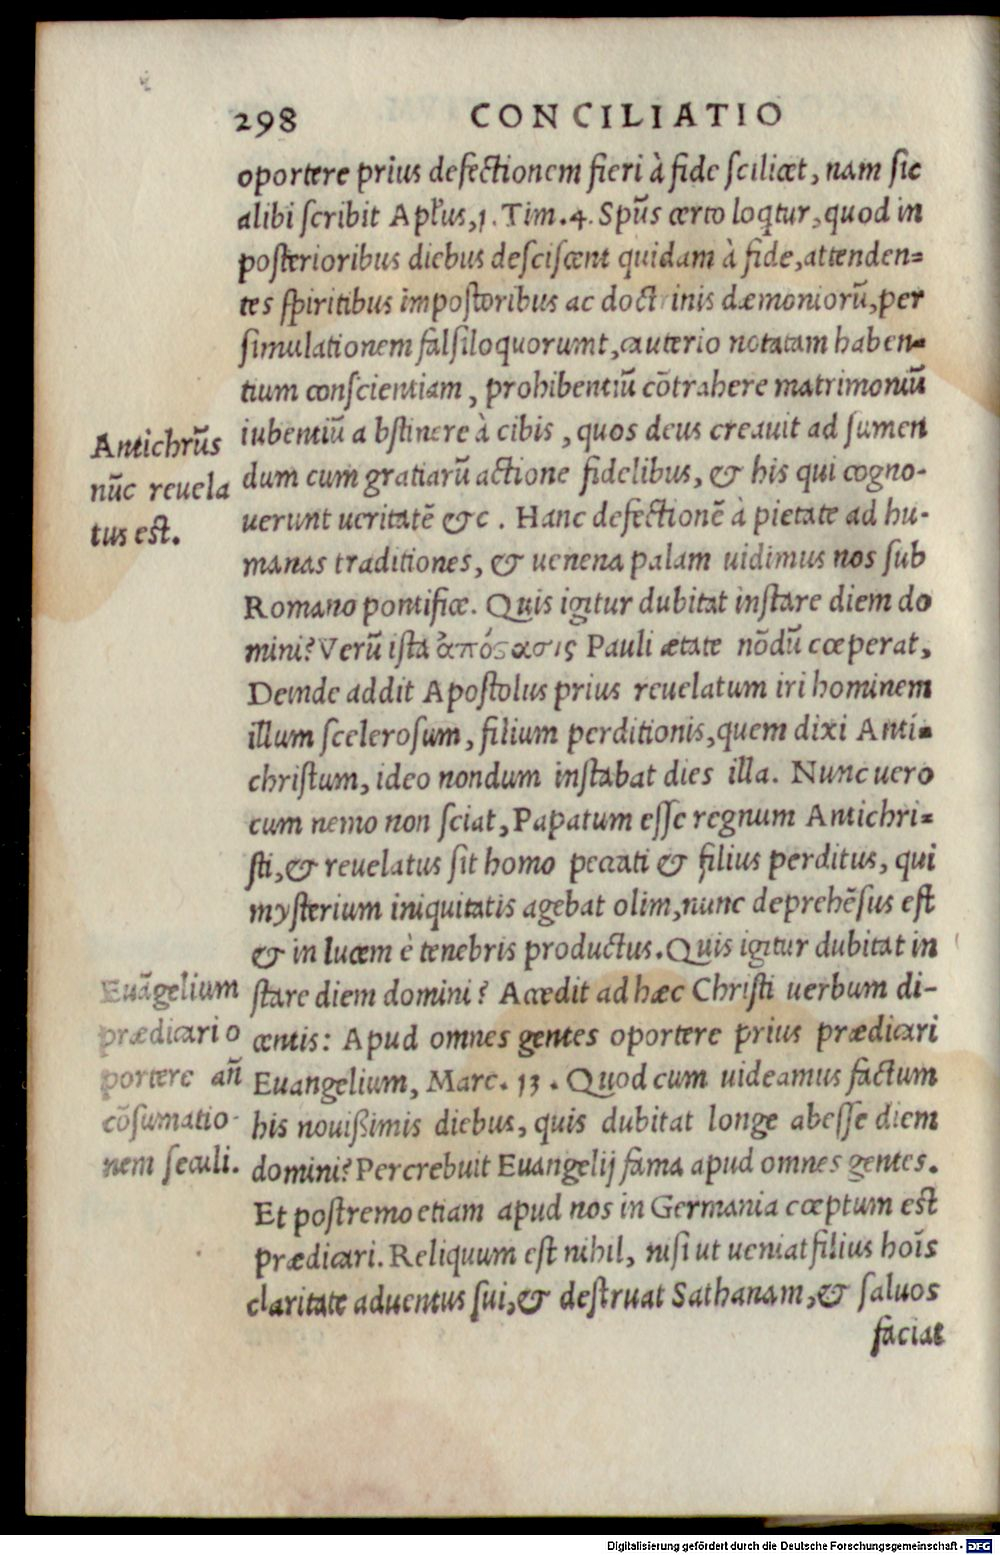 298 CONCILIATIO
oportere prius defectionem fieri à fide scilicet, nam sic
alibi scribit Apl'us, 1. Tim. 4. Spūs certo loqtur, quod in
posterioribus diebus desciscent quidam à fide, attenden=
tes spiritibus impostoribus ac doctrinis dæmoniorū, per
simulationem falsiloquorumt, cauterio notatam haben=
tium conscientiam, prohibentiū cōtrahere matrimoniū
iubentiū abstinere à cibis, quos deus creauit ad sumen
dum cum gratiarū actione fidelibus, & his qui cogno-
uerunt ueritatē &c. Hanc defectionē à pietate ad hu-
manas traditiones, & uenena palam uidimus nos sub
Romano pontifice. Quis igitur dubitat instare diem do
mini? Verū ista ἀπόστασις Pauli ætate nōdū cœperat,
Deinde addit Apostolus prius reuelatum iri hominem
illum scelerosum, filium perditionis, quem dixi Anti=
christum, ideo nondum instabat dies illa. Nunc uero
cum nemo non sciat, Papatum esse regnum Antichri=
sti, & reuelatus sit homo peccati & filius perditus, qui
mysterium iniquitatis agebat olim, nunc deprehēsus est
& in lucem è tenebris productus. Quis igitur dubitat in
stare diem domini? Accedit ad hæc Christi uerbum di-
centis: Apud omnes gentes oportere prius prædicari
Euangelium, Marc. 13. Quod cum uideamus factum
his nouißimis diebus, quis dubitat longe abesse diem
domini? Percrebuit Euangelij fama apud omnes gentes.
Et postremo etiam apud nos in Germania cœptum est
prædicari. Reliquum est nihil, nisi ut ueniat filius hoīs
claritate aduentus sui, & destruat Sathanam, & saluos
faciat
Antichrūs
nūc reuela
tus est.
Euāgelium
prædicari o
portere añ
cōsumatio-
nem seculi.
Digitalisierung gefördert durch die Deutsche Forschungsgemeinschaft - DFG